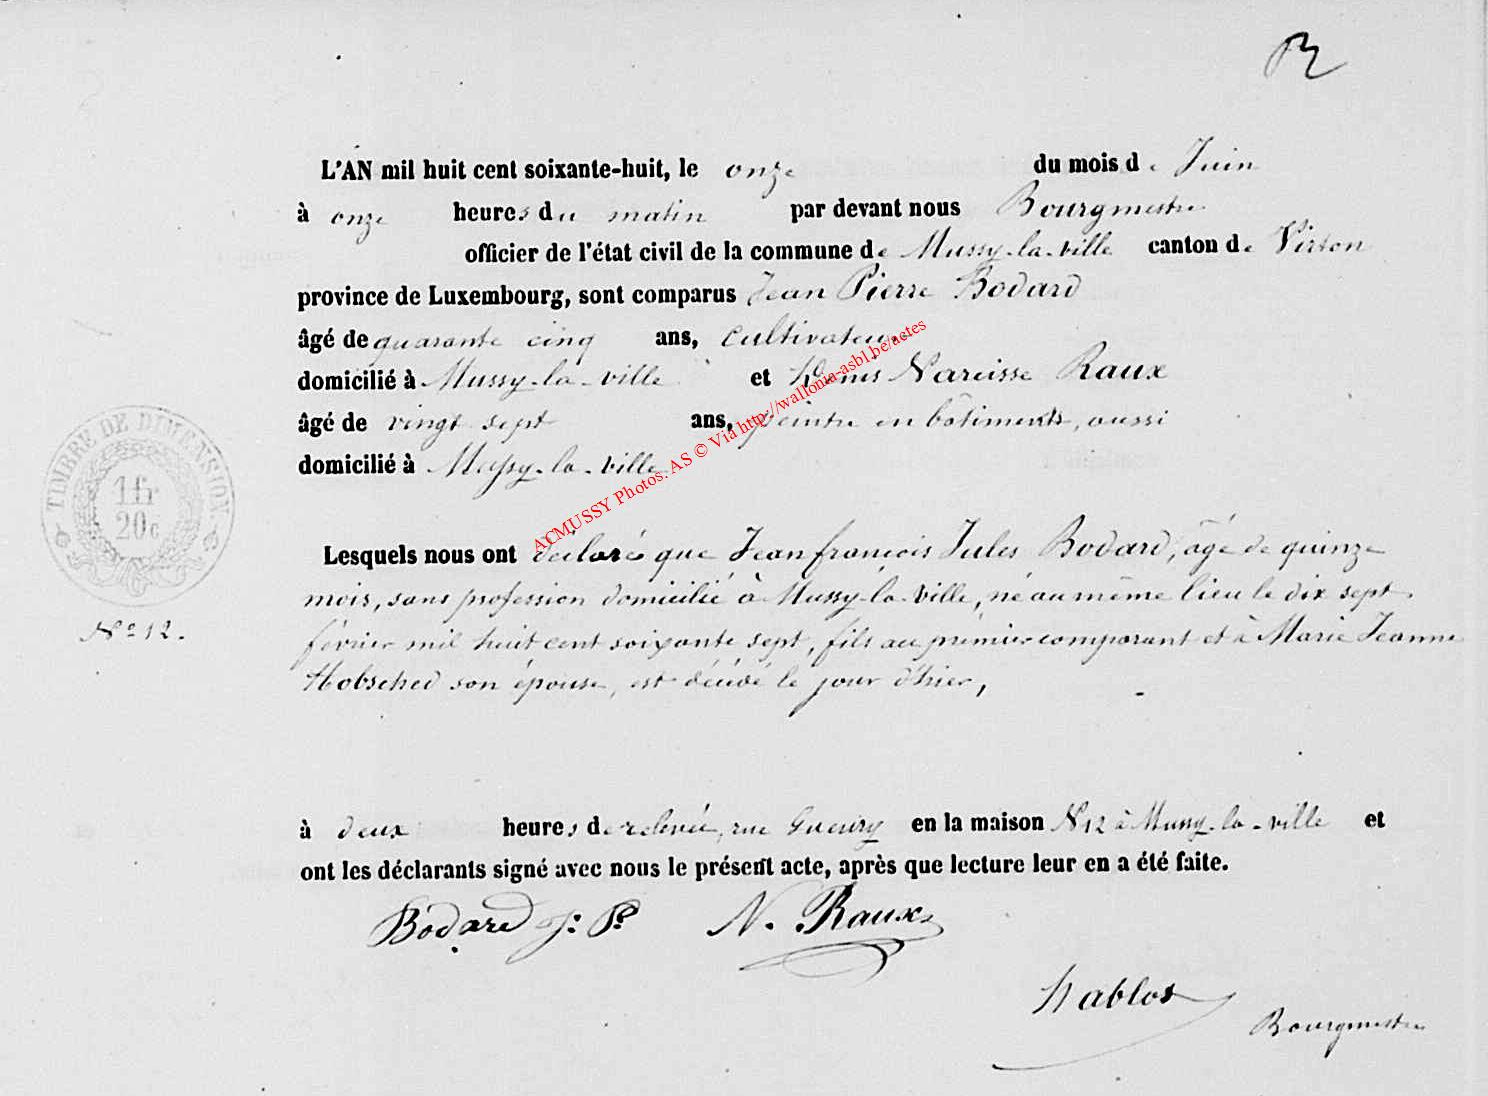 L'AN mil huit cent soixante-huit, le onze du mois de Juin
à onze heures du matin par devant nous Bourgmestre
officier de l'état civil de la commune de Mussy-la-ville canton de Virton
province de Luxembourg, sont comparus Jean Pierre Bodard
âgé de quarante cinq ans, cultivateur
domicilié à Mussy-la-ville et Denis Narcisse Raux
âgé de vingt sept ans, peintre en bâtiments, aussi
domicilié à Mussy-la-ville
ACMUSSY Photos: AS © Via http://wallonia-asbl.be/actes
TIMBRE DE DIMENSION
1 fr
20 c
Lesquels nous ont déclaré que Jean françois Jules Bodard, âgé de quinze
mois, sans profession domicilié à Mussy-la-ville, né au même lieu le dix sept
février mil huit cent soixante sept, fils au prémier comparant et à Marie Jeanne
Nº 12.
Hobsched son épouse, est décédé le jour d'hier,
à deux heures de relevée, rue en la maison N 12 à Mussy-la-ville et
ont les déclarants signé avec nous le présent acte, après que lecture leur en a été faite.
Bodard J: P. N. Raux
Bourgmestre